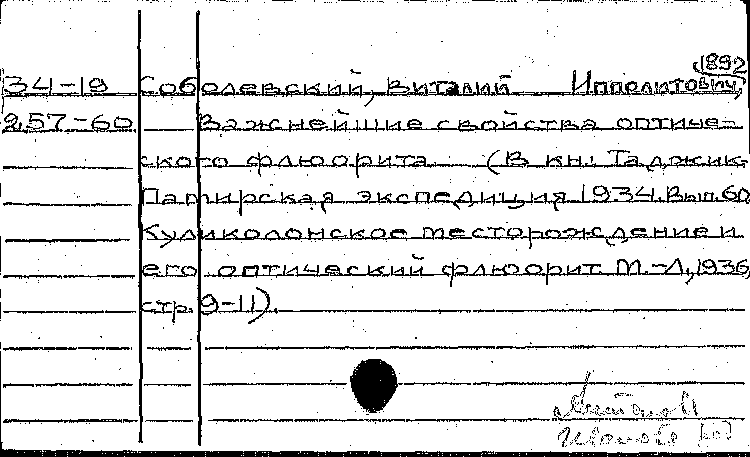 1892
34-19 Соболевский, Виталий Ипполитович,
257-60 Важнейшие свойства оптиче-
ского флюорита (В кн.: Таджик.
Памирская экспедиция 1934. Вып. 60
Куликолонское месторождение и
его оптический флюорит М.-Л., 1936,
стр. 9-11).